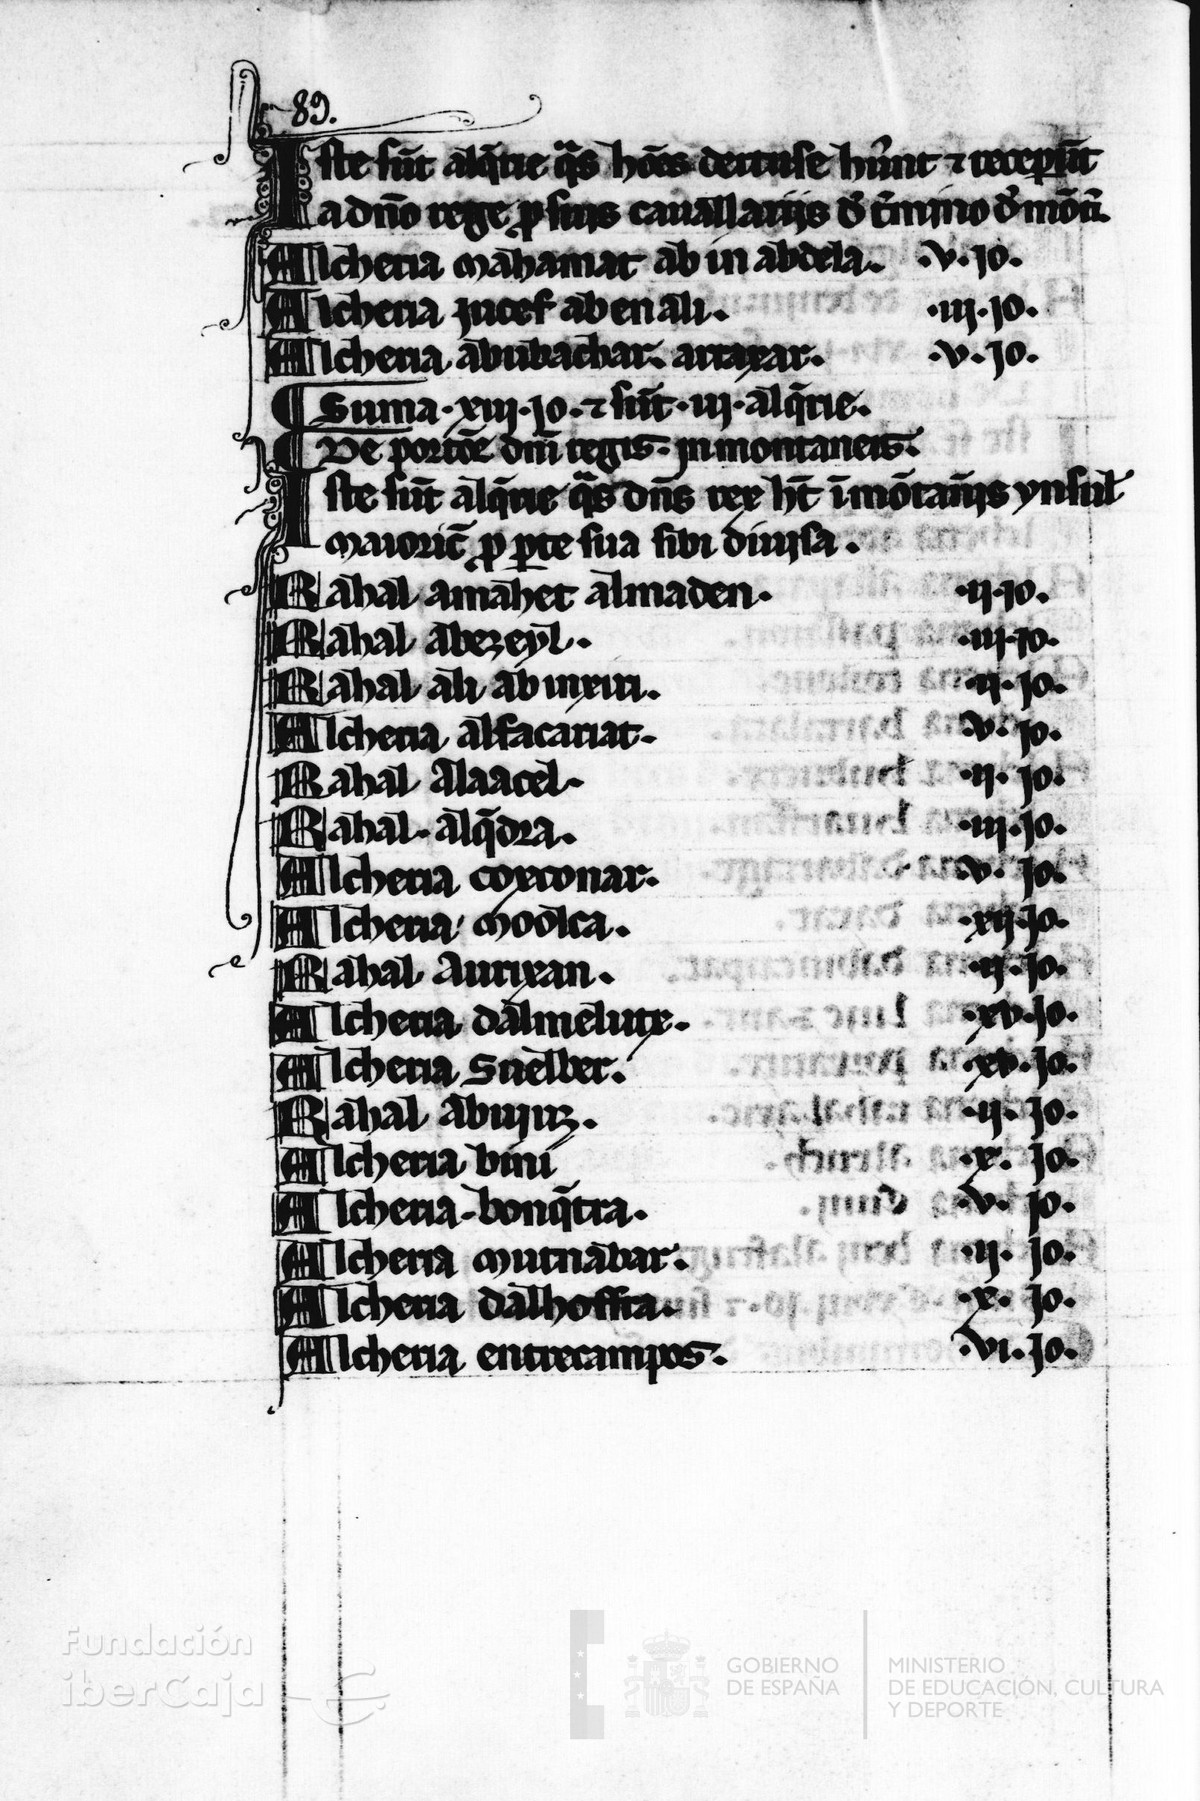 89.
Iste sūt alq̄rie q̄s hōēs dertuse hūnt ⁊ receperūt
a dn̄o rege ꝑ suis cauallariis đ t̄mino đ mōt̄.
Alcheria mahamat ab in abdela. .v. jo.
Alcheria jucef abenali. .iii. jo.
Alcheria abubachar. arraxar. .v. jo.
¶ Suma .xiii. jo. ⁊ sūt .iii. alq̄rie.
¶ De portōe dn̄i regis. in montaneis.
Iste sūt alq̄rie q̄s dn̄s rex ht̄ ī mōtan̄is ynsul
maioric̄ ꝑ ꝑte sua sibi diuisa.
Rahal amahet almaden. .ii. jo.
Rahal abezeyl. .iii. jo.
Rahal ali abinxiri. .ii. jo.
Alcheria alfacariat. .v. jo.
Rahal alaacel. .ii. jo.
Rahal. alq̄dra. .iii. jo.
Alcheria coxconar. .v. jo.
Alcheria moolca. .xii. jo.
Rahal aurixan. .ii. jo.
Alcheria dalmelutx. .xv. jo.
Alcheria suelber. .xv. jo.
Rahal abiniz. .ii. jo.
Alcheria bini .x. jo.
Alcheria. bonq̄tra. .v. jo.
Alcheria mutnabar. .ii. jo.
Alcheria dalhoffra. .x. jo.
Alcheria entrecampos. .vi. jo.
Fundación
iberCaja
GOBIERNO
DE ESPAÑA
MINISTERIO
DE EDUCACIÓN, CULTURA
Y DEPORTE